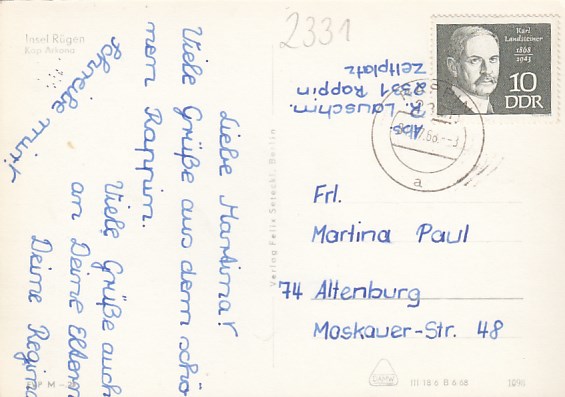 Insel Rügen
Kap Arkona
2331
Liebe Martina!
Viele Grüße aus dem schö
nen Rappin.
Viele Grüße auch
an Deine Eltern
Deine Regina
Schreibe mir
Abs.
R. Lauschm.
2331 Rappin
Zeltplatz
Karl
Landsteiner
1868
1943
10
DDR
a
Frl.
Martina Paul
74 Altenburg
Moskauer-Str. 48
Verlag Felix Setecki, Berlin
M
III 18 6 B 6 68
109